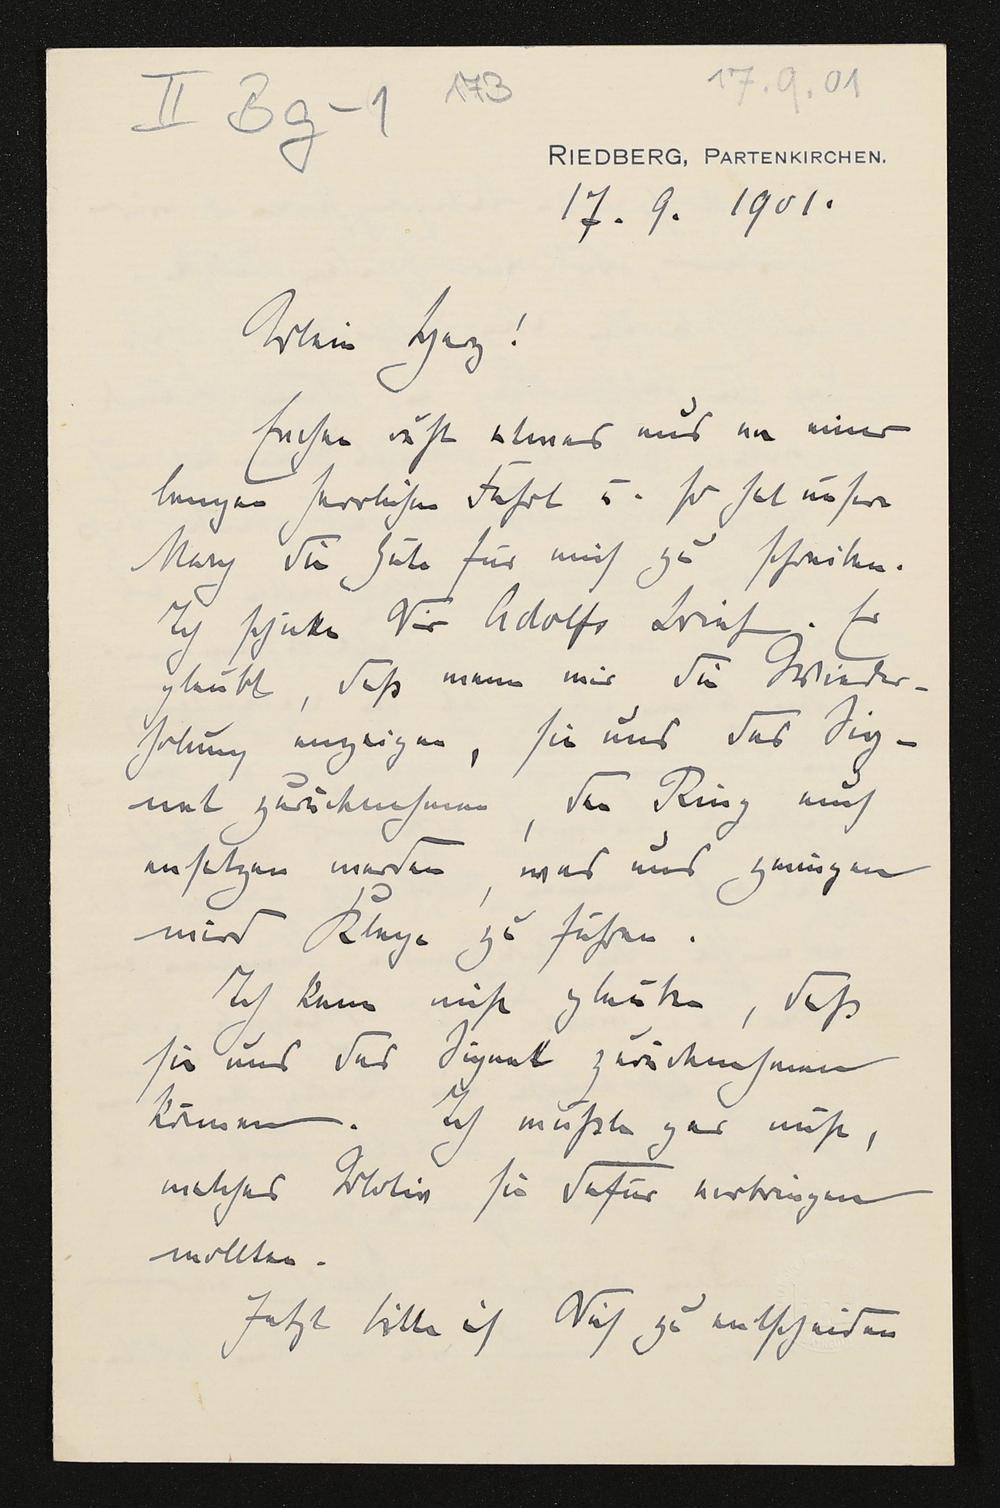 II Bg-1 173 17.9.01
RIEDBERG, PARTENKIRCHEN.
17. 9. 1901.
Mein Herz!
ruht etwas aus von einer
langen herrlichen Fahrt u. so hat unsere
Mary die Güte für mich zu schreiben.
Ich schicke Dir Adolfs Brief. Er
glaubt, daß wenn wir die Wieder-
holung anzeigen, sie uns das Sig-
nat zurücknehmen, den Ring auch
ansetzen werden, was uns zwingen
wird Klage zu führen.
Ich kann nicht glauben, daß
sie uns das Signat zurücknehmen
können. Ich wüßte gar nicht,
welches Motiv sie dafür vorbringen
wollten.
Jetzt bitte ich Dich zu entscheiden